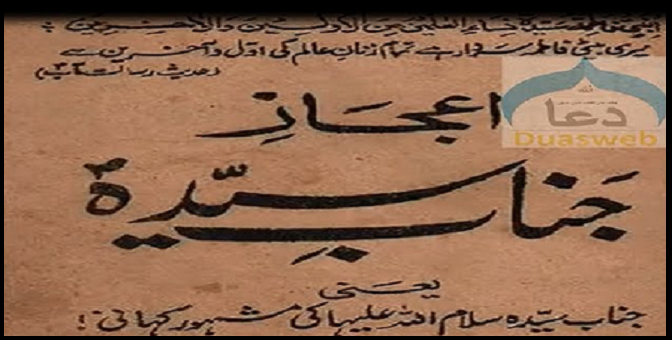 ابنتی فاطمہ سیدۃ نساء العلمین من الاولین والآخرین
میری بیٹی فاطمہ سردار ہے تمام زنانِ عالم کی اوّل و آخرین سے
(حدیث رسالت مآبؐ)
اعجازِ
جنابِ سیّدہؑ
یعنی
جناب سیّدہ سلام اللہ علیہا کی مشہور کہانی!
دعا
Duasweb